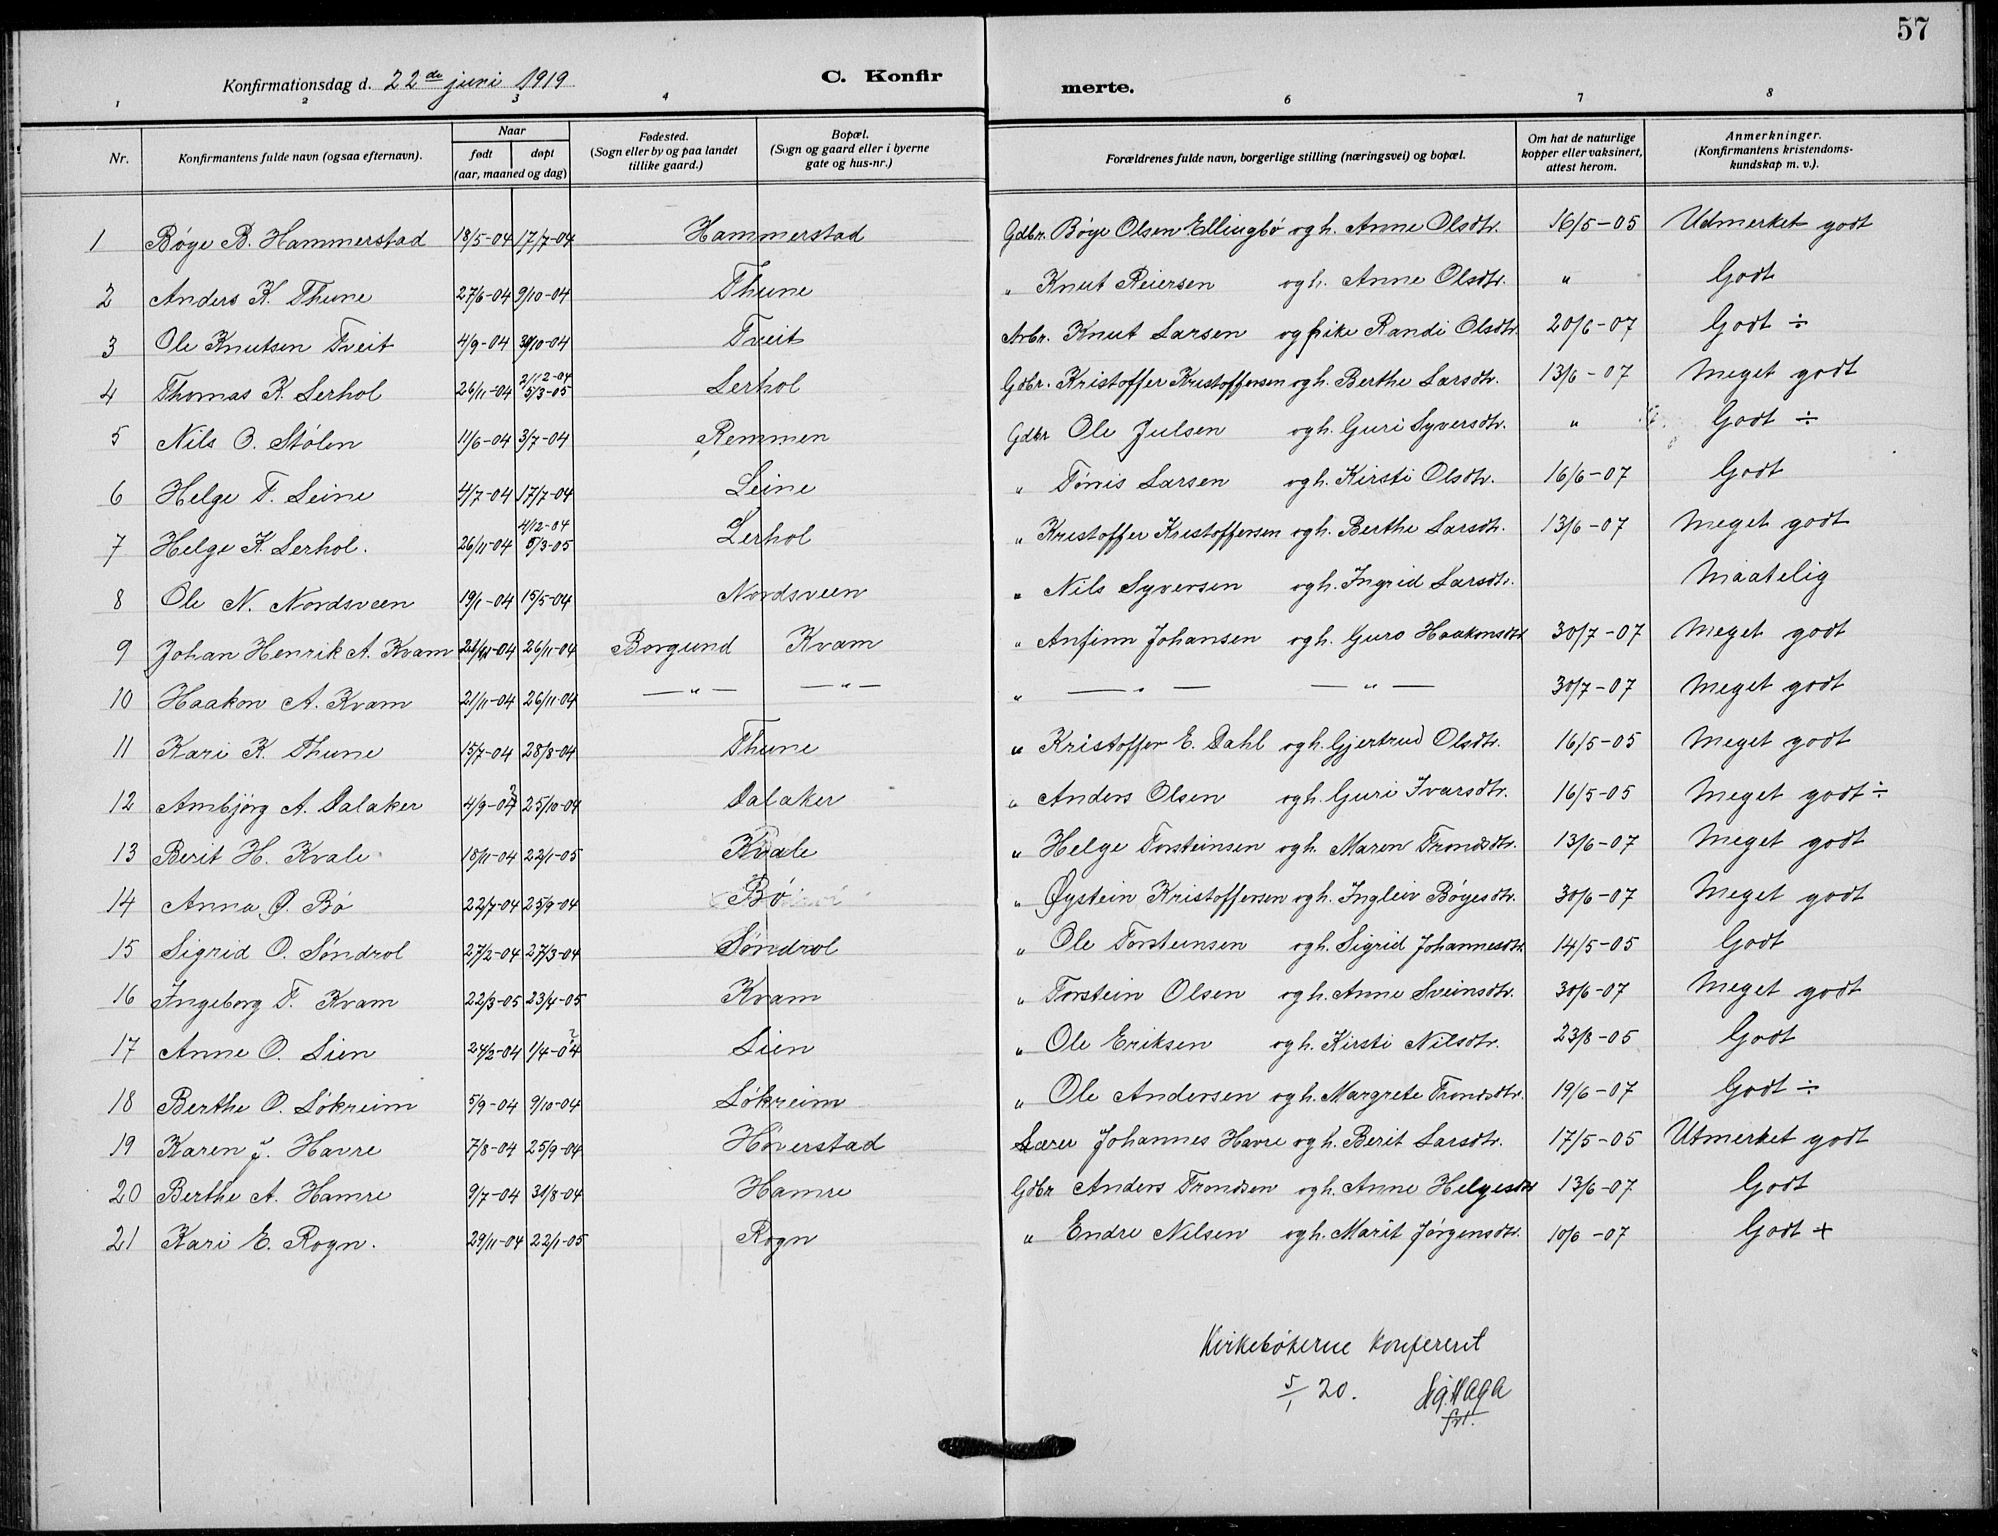 57
Konfirmationsdag d. 22de juni 1919
C. Konfirmerte.
1 2 3 4 6 7 8
Nr. Konfirmantens fulde navn (ogsaa efternavn). Naar født døpt (aar, maaned og dag) Fødested. (Sogn eller by og paa landet tillike gaard.) Bopæl. (Sogn og gaard eller i byerne gate og hus-nr.) Forældrenes fulde navn, borgerlige stilling (næringsvei) og bopæl. Om hat de naturlige kopper eller vaksinert, attest herom. Anmerkninger. (Konfirmantens kristendomskundskap m. v.).
1 Bøye B. Hammerstad 18/5-04 17/7-04 Hammerstad Gdbr. Bøye Olsen Ellingbø og h. Anne Olsdtr. 16/5-05 Udmerket godt
2 Anders K. Thune 27/6-04 9/10-04 Thune " Knut Reiersen og h. Anne Olsdtr. " Godt
3 Ole Knutsen Tveit 4/9-04 30/10-04 Tveit Arbr. Knut Larsen og pike Randi Olsdtr. 20/6-07 Godt ÷
4 Thomas K. Lerhol 26/11-04 2/12-04 5/3-05 Lerhol Gdbr. Kristoffer Kristoffersen og h. Berthe Larsdtr. 13/6-07 Meget godt
5 Nils O. Stølen 11/6-04 3/7-04 Remmen Gdbr Ole Julsen og h. Guri Syversdtr. " Godt ÷
6 Helge T. Leine 4/7-04 17/7-04 Leine " Tønis Larsen og h. Kirsti Olsdtr. 16/6-07 Godt
7 Helge K. Lerhol. 26/11-04 4/12-04 5/3-05 Lerhol " Kristoffer Kristoffersen og h. Berthe Larsdtr. 13/6-07 Meget godt
8 Ole N. Nordsveen 19/1-04 15/5-04 Nordsveen " Nils Syversen og h. Ingrid Larsdtr. Maatelig
9 Johan Henrik A. Kvam 21/11-04 26/11-04 Borgund Kvam " Anfinn Johansen og h. Guro Haakonsdtr 30/7-07 Meget godt
10 Haakon A. Kvam 21/11-04 26/11-04 — " — — " — " — " — — " — 30/7-07 Meget godt
11 Kari K. Thune 15/7-04 28/8-04 Thune " Kristoffer E. Dahl og h. Gjertrud Olsdtr. 16/5-05 Meget godt
12 Ambjørg A. Dalaker 4/9-04 25/10-04 Dalaker " Anders Olsen og h. Guri Ivarsdtr. 16/5-05 Meget godt ÷
13 Berit H. Kvale 18/11-04 22/1-05 Kvale " Helge Torsteinsen og h. Maren Trondsdtr. 13/6-07 Meget godt
14 Anna Ø. Bø 22/7-04 25/9-04 Bø " Øystein Kristoffersen og h. Ingleiv Bøyesdtr. 30/6-07 Meget godt
15 Sigrid O. Søndrol 27/2-04 27/3-04 Søndrol " Ole Torsteinsen og h. Sigrid Johannesdtr 14/5-05 Godt
16 Ingeborg T. Kvam 22/3-05 23/4-05 Kvam " Torstein Olsen og h. Anne Sveinsdtr. 30/6-07 Meget godt
17 Anne O. Lien 24/2-04 1/4-04 ? Lien " Ole Eriksen og h. Kirsti Nilsdtr. 23/8-05 Godt
18 Berthe O. Løkreim 5/9-04 9/10-04 Løkreim " Ole Andersen og h. Margrete Trondsdtr. 19/6-07 Godt ÷
19 Karen J. Havre 7/8-04 25/9-04 Høverstad Lærer Johannes Havre og h. Berit Larsdtr. 17/5-05 Utmerket godt
20 Berthe A. Hamre 9/7-04 31/8-04 Hamre Gdbr Anders Trondsen og h. Anne Helgesdtr 13/6-07 Godt
21 Kari E. Rogn. 29/11-04 22/1-05 Rogn " Endre Nilsen og h. Marit Jørgensdtr. 10/6-07 Godt +
Kirkebøkerne konfereret
5/1 20. Haga